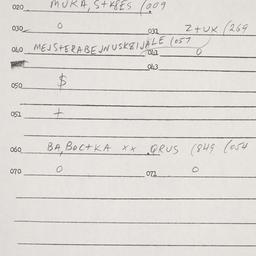 020 MUKA, S+KBES (009
030 0 031 Z+UX (269
040 MEJS+ERABEJNUSKBIJALE (057
041 0
043
050 $
051 +
060 BA, BOC+KA xx . QRUS (849 (054
070 0 071 0